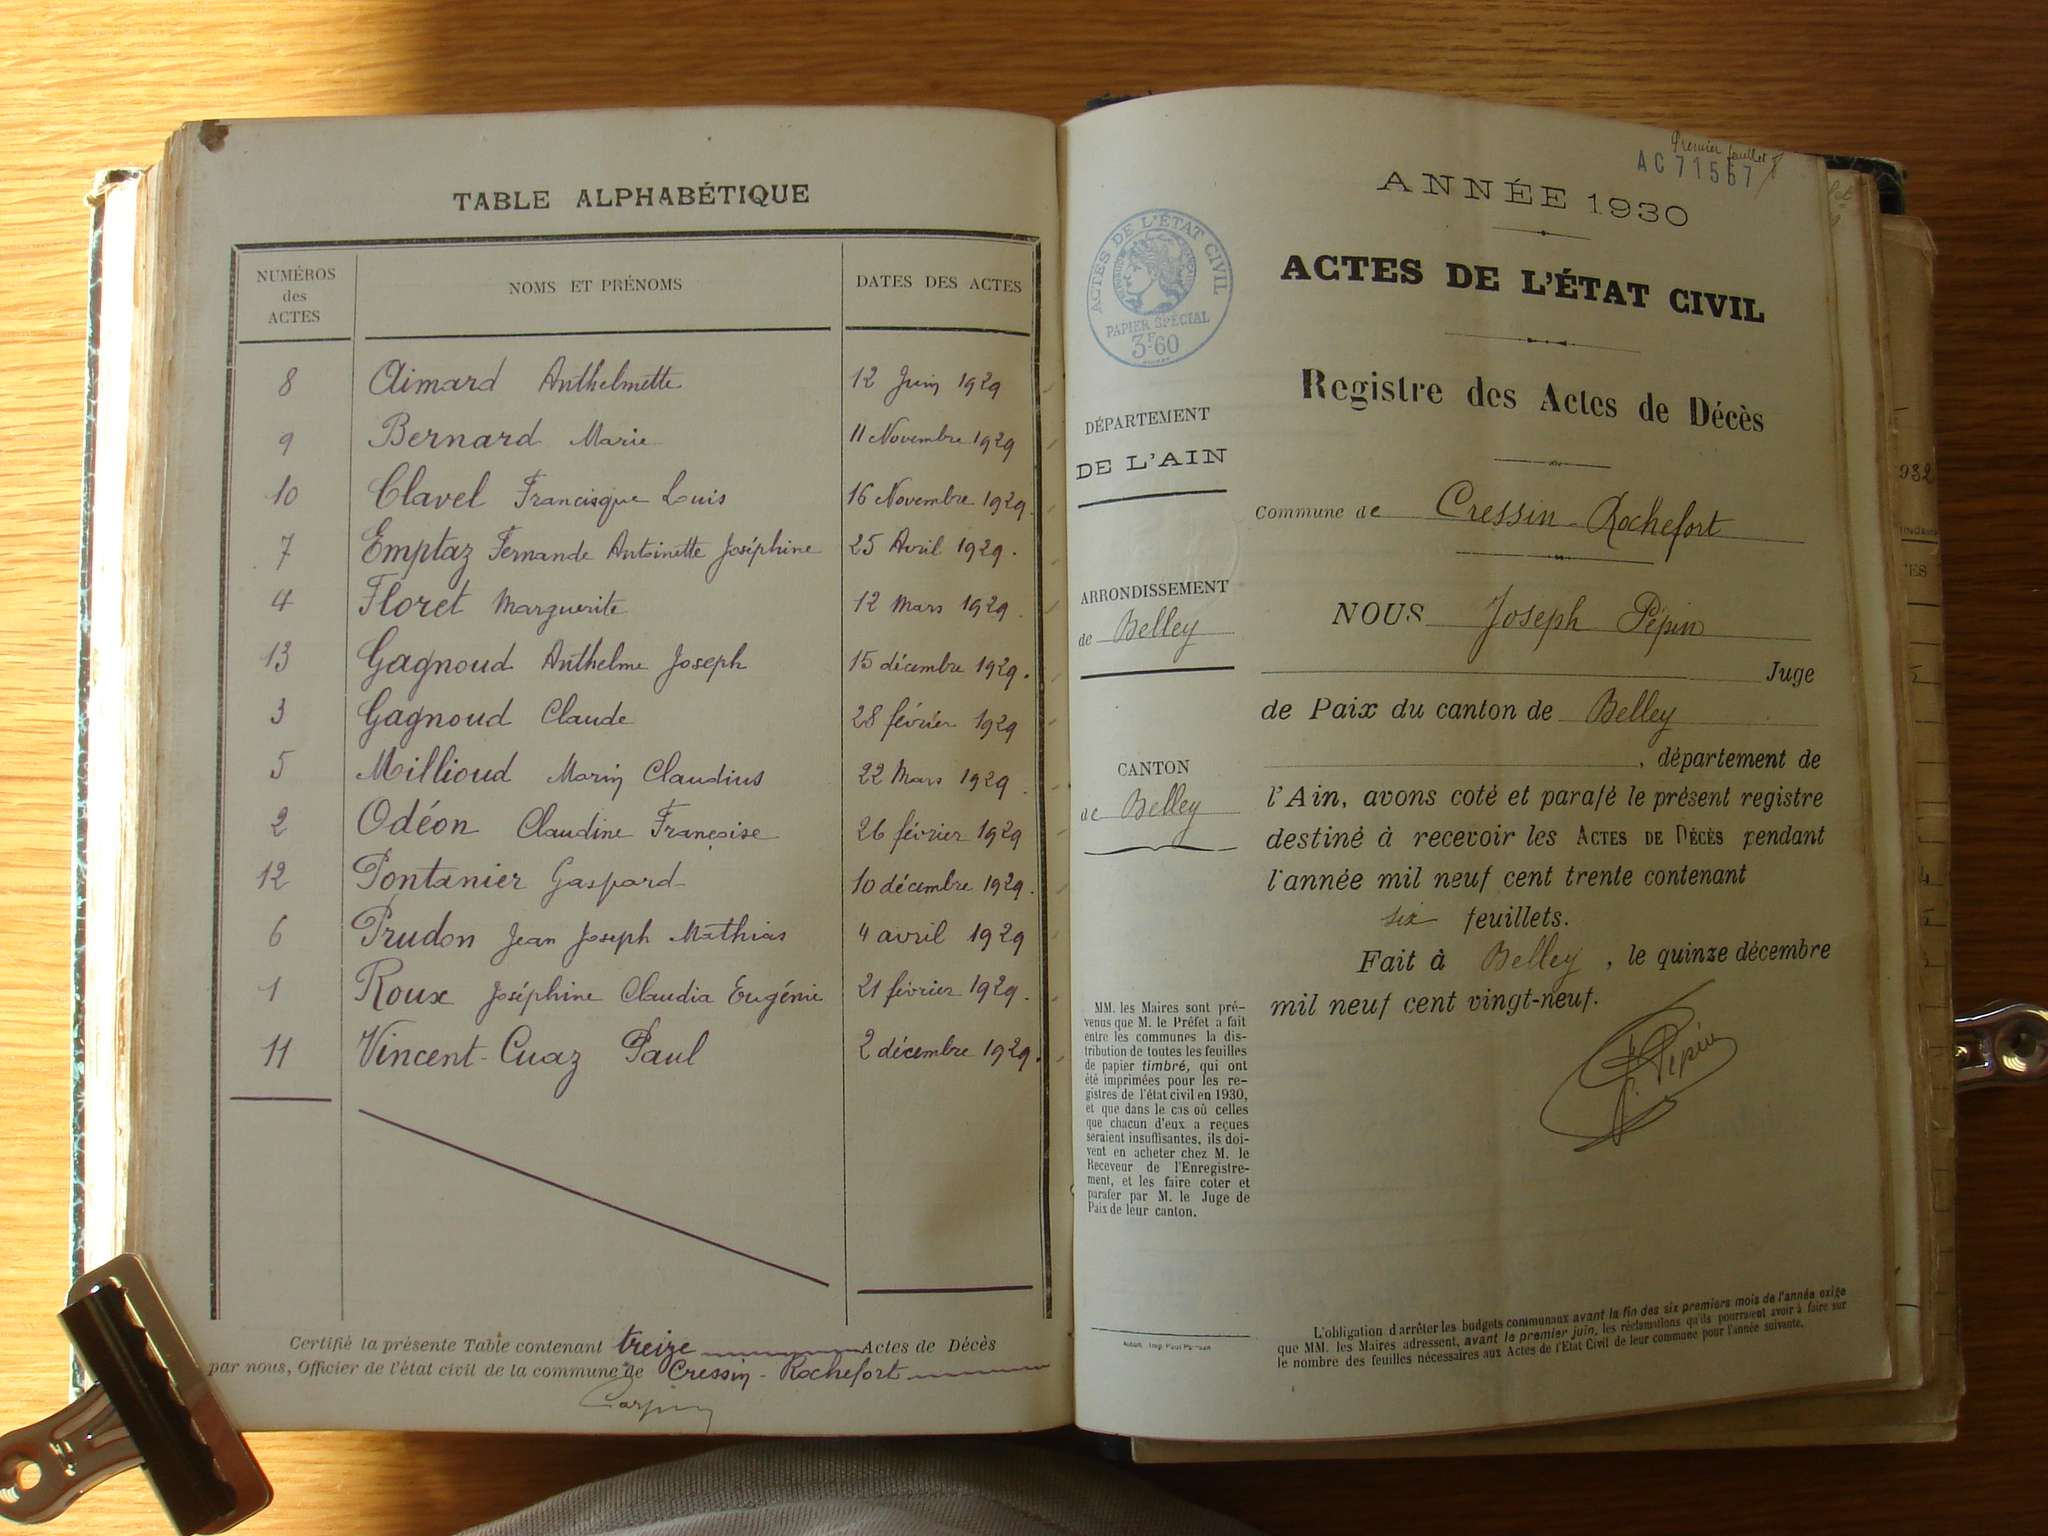 TABLE ALPHABÉTIQUE
NUMÉROS des ACTES NOMS ET PRÉNOMS DATES DES ACTES
8 Aimard Anthelmette 12 Juin 1929
9 Bernard Marie 11 Novembre 1929
10 Clavel Francisque Louis 16 Novembre 1929.
7 Emptaz Fernande Antoinette Joséphine 25 Avril 1929.
4 Floret Marguerite 12 Mars 1929.
13 Gagnoud Anthelme Joseph 15 décembre 1929.
3 Gagnoud Claude 28 février 1929
5 Millioud Marin Claudius 22 Mars 1929.
2 Odéon Claudine Françoise 26 février 1929
12 Pontanier Gaspard 10 décembre 1929.
6 Prudon Jean Joseph Mathias 4 avril 1929
1 Roux Joséphine Claudia Eugénie 21 février 1929.
11 Vincent-Cuaz Paul 2 décembre 1929.
Certifié la présente Table contenant treize Actes de Décès
par nous, Officier de l'état civil de la commune de Cressin-Rochefort
Premier feuillet
AC 71557
ANNÉE 1930
ACTES DE L'ÉTAT CIVIL
PAPIER SPÉCIAL
3F60
ACTES DE L'ÉTAT CIVIL
Registre des Actes de Décès
DÉPARTEMENT
DE L'AIN
Commune de Cressin-Rochefort
ARRONDISSEMENT
de Belley
CANTON
de Belley
NOUS Joseph Pépin
Juge
de Paix du canton de Belley
, département de
l'Ain, avons coté et parafé le présent registre
destiné à recevoir les ACTES DE DÉCÈS pendant
l'année mil neuf cent trente contenant
six feuillets.
Fait à Belley, le quinze décembre
mil neuf cent vingt-neuf.
J. Pépin
MM. les Maires sont pré-
venus que M. le Préfet a fait
entre les communes la dis-
tribution de toutes les feuilles
de papier timbré, qui ont
été imprimées pour les re-
gistres de l'état civil en 1930,
et que dans le cas où celles
que chacun d'eux a reçues
seraient insuffisantes, ils doi-
vent en acheter chez M. le
Receveur de l'Enregistre-
ment, et les faire coter et
parafer par M. le Juge de
Paix de leur canton.
L'obligation d'arrêter les budgets communaux avant la fin des six premiers mois de l'année exige
que MM. les Maires adressent, avant le premier juin, les réclamations qu'ils pourraient avoir à faire sur
le nombre des feuilles nécessaires aux Actes de l'Etat Civil de leur commune pour l'année suivante.
932